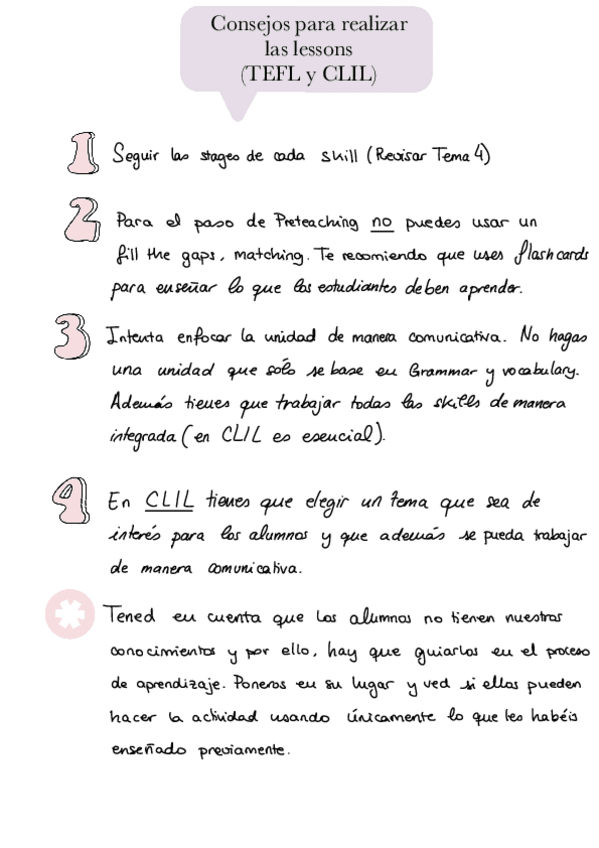 Consejos para realizar
las lessons
(TEFL y CLIL)
1 Seguir las stages de cada skill (Revisar Tema 4)
2 Para el paso de Preteaching no puedes usar un
fill the gaps, matching. Te recomiendo que uses flashcards
para enseñar lo que los estudiantes deben aprender.
3 Intenta enfocar la unidad de manera comunicativa. No hagas
una unidad que sólo se base en Grammar y vocabulary.
Además tienes que trabajar todas las skills de manera
integrada (en CLIL es esencial).
4 En CLIL tienes que elegir un tema que sea de
interés para los alumnos y que además se pueda trabajar
de manera comunicativa.
* Tened en cuenta que los alumnos no tienen nuestros
conocimientos y por ello, hay que guiarlos en el proceso
de aprendizaje. Poneros en su lugar y ved si ellos pueden
hacer la actividad usando únicamente lo que les habéis
enseñado previamente.